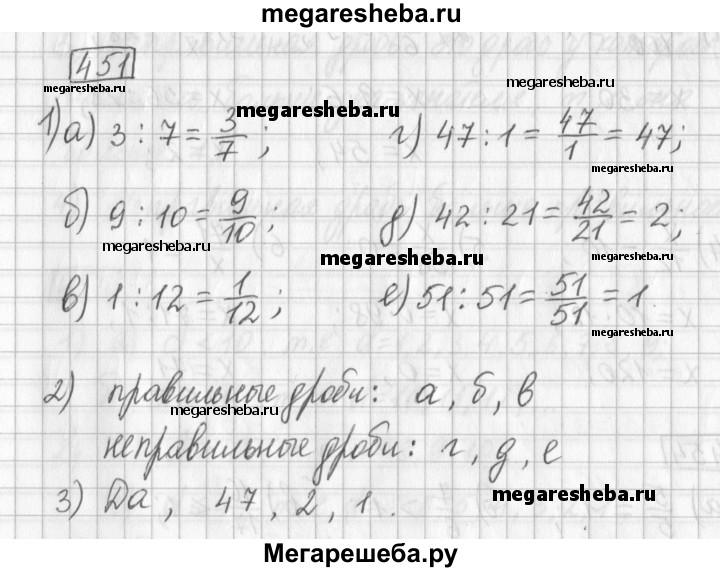 megaresheba.ru
451
megaresheba.ru
megaresheba.ru
megaresheba.ru
1) а) 3 : 7 = 3/7 ; г) 47 : 1 = 47/1 = 47;
megaresheba.ru
б) 9 : 10 = 9/10 ; д) 42 : 21 = 42/21 = 2;
megaresheba.ru
megaresheba.ru
в) 1 : 12 = 1/12 ; е) 51 : 51 = 51/51 = 1.
megaresheba.ru
2) правильные дроби: а, б, в
megaresheba.ru
неправильные дроби: г, д, е
3) Да, 47, 2, 1.
megaresheba.ru
Мегарешеба.ру